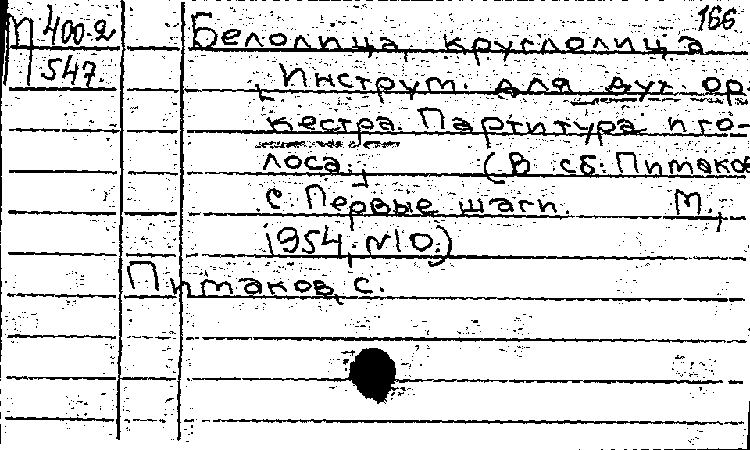 166
М 400.2
547.
Белолица, круглолица
[Инструм. для дух. ор-
кестра. Партитура и го-
лоса.] (В сб: Питаков
С. Первые шаги. М.,
1954, №10.)
Питаков, С.